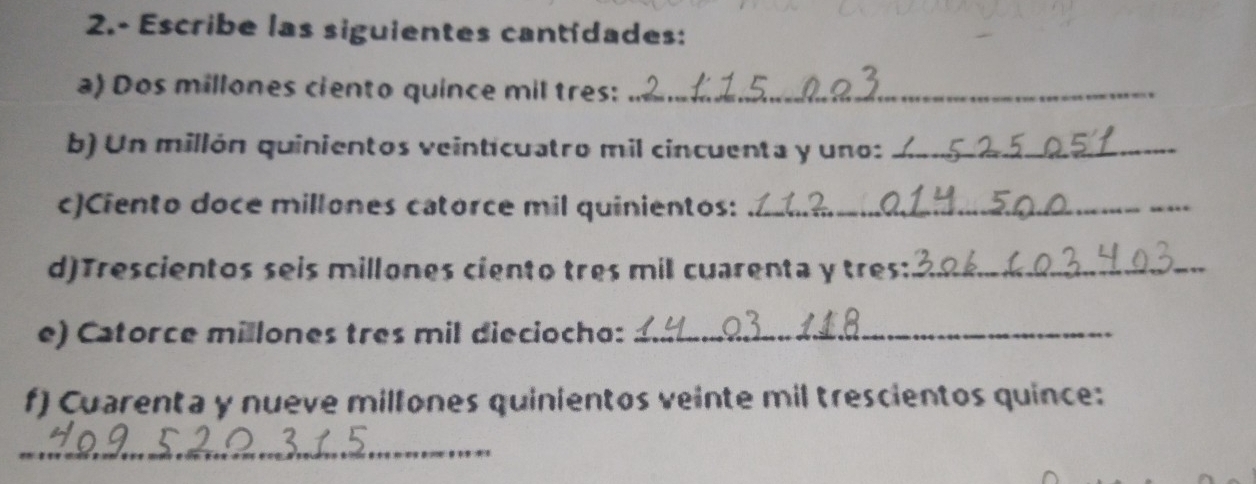 2.- Escribe las siguientes cantídades:
a) Dos millones ciento quince mil tres: 2 115 003
b) Un millón quinientos veinticuatro mil cincuenta y uno: 1 525 051
c)Ciento doce millones catorce mil quinientos: 112 014 500
d)Trescientos seis millones ciento tres mil cuarenta y tres: 306 103 403
e) Catorce millones tres mil dieciocho: 14 03 118
f) Cuarenta y nueve millones quinientos veinte mil trescientos quince:
409 520 315